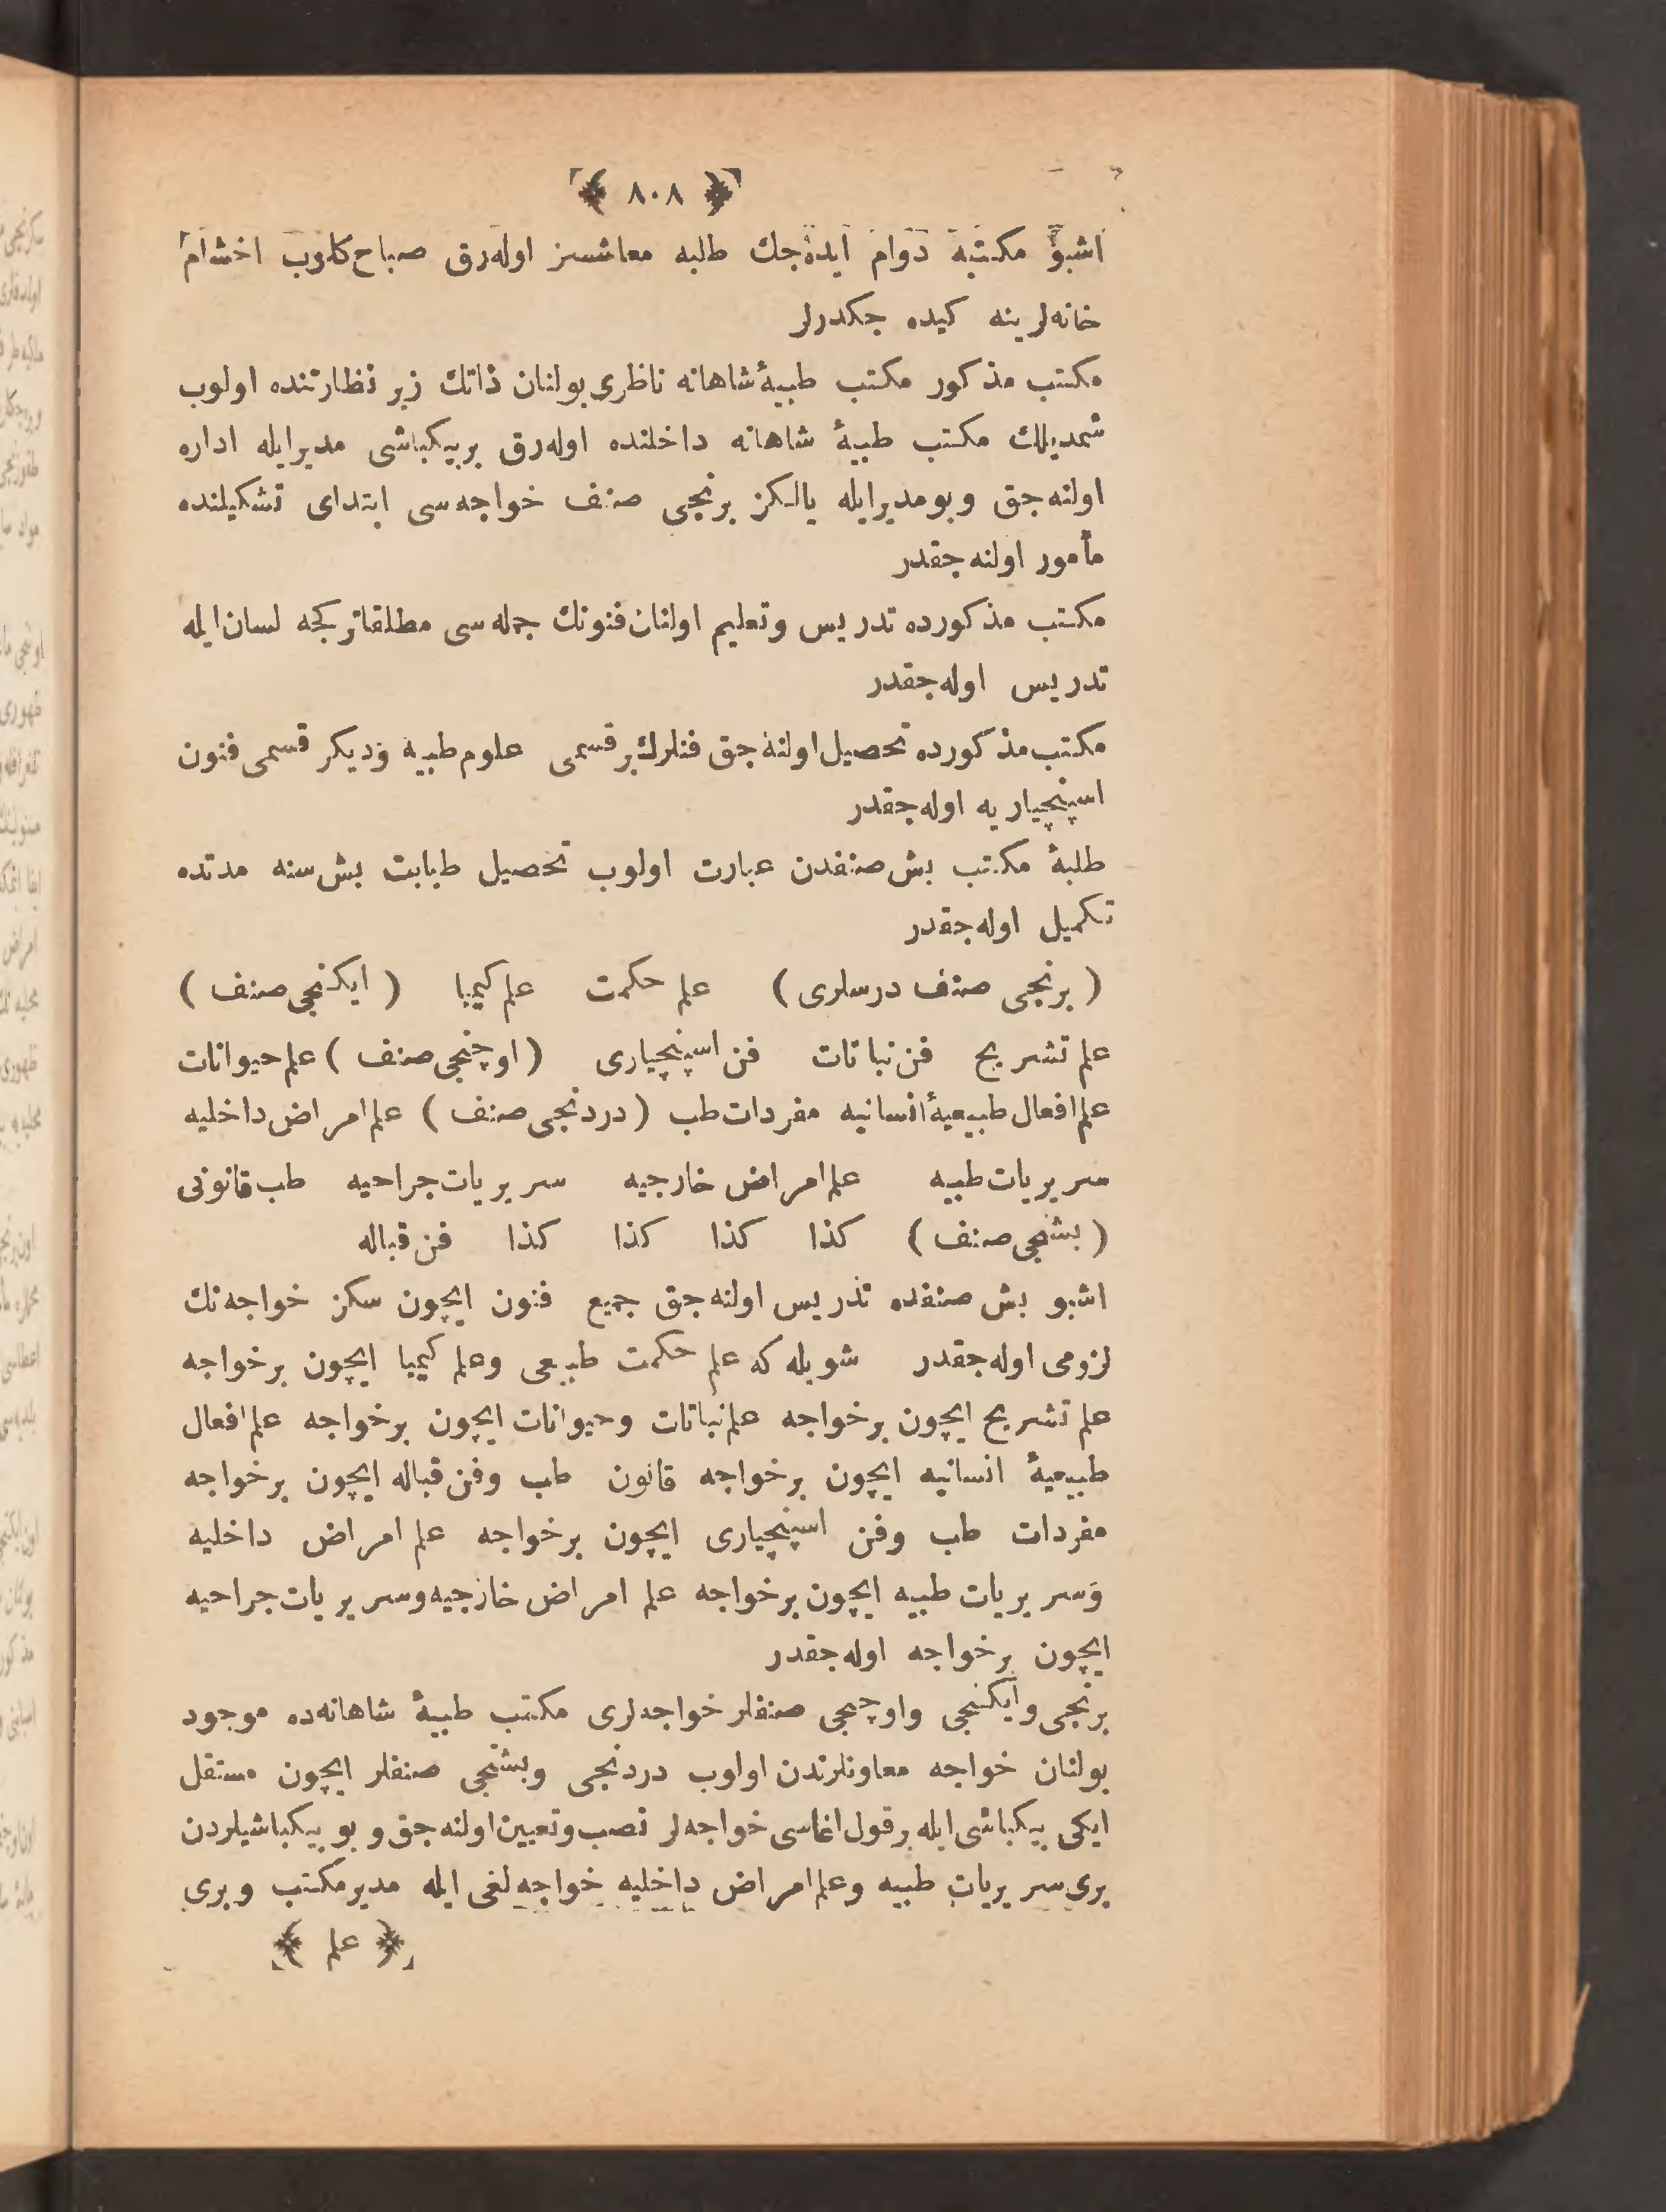 ﴿ ٨٠٨ ﴾
اشبو مكتبه دوام ايده‌جك طلبه معاشسز اوله‌رق صباح كلوب اخشام
خانه‌لرينه كيده جكدرلر
مكتب مذكور مكتب طبيهٔ شاهانه ناظرى بولنان ذاتك زير نظارتنده اولوب
شمديلك مكتب طبيهٔ شاهانه داخلنده اوله‌رق بر بيكباشى مدير ايله اداره
اولنه‌جق و بو مدير ايله يالكز برنجى صنف خواجه‌سى ابتداى تشكيلنده
مأمور اولنه‌جقدر
مكتب مذكورده تدريس و تعليم اولنان فنونك جمله‌سى مطلقا تركجه لسان ايله
تدريس اوله‌جقدر
مكتب مذكورده تحصيل اولنه‌جق فنلرك بر قسمى علوم طبيه و ديكر قسمى فنون
اسپنچياريه اوله‌جقدر
طلبهٔ مكتب بش صنفدن عبارت اولوب تحصيل طبابت بش سنه مدتده
تكميل اوله‌جقدر
( برنجى صنف درسلرى ) علم حكمت علم كيميا ( ايكنجى صنف )
علم تشريح فن نباتات فن اسپنچيارى ( اوچنجى صنف ) علم حيوانات
علم افعال طبيعيهٔ انسانيه مفردات طب ( دردنجى صنف ) علم امراض داخليه
سريريات طبيه علم امراض خارجيه سريريات جراحيه طب قانونى
( بشنجى صنف ) كذا كذا كذا كذا فن قباله
اشبو بش صنفده تدريس اولنه‌جق جميع فنون ايچون سكز خواجه‌نك
لزومى اوله‌جقدر شويله كه علم حكمت طبيعى وعلم كيميا ايچون برخواجه
علم تشريح ايچون برخواجه علم نباتات وحيوانات ايچون برخواجه علم افعال
طبيعيهٔ انسانيه ايچون برخواجه قانون طب وفن قباله ايچون برخواجه
مفردات طب وفن اسپنچيارى ايچون برخواجه علم امراض داخليه
وسريريات طبيه ايچون برخواجه علم امراض خارجيه وسريريات جراحيه
ايچون برخواجه اوله‌جقدر
برنجى و ايكنجى واوچنجى صنفلر خواجه‌لرى مكتب طبيهٔ شاهانه‌ده موجود
بولنان خواجه معاونلرندن اولوب دردنجى وبشنجى صنفلر ايچون مستقل
ايكى بيكباشى ايله برقول اغاسى خواجه‌لر نصب وتعيين اولنه‌جق و بو بيكباشيلردن
برى سريريات طبيه وعلم امراض داخليه خواجه‌لغى ايله مدير مكتب و برى
﴿ علم ﴾